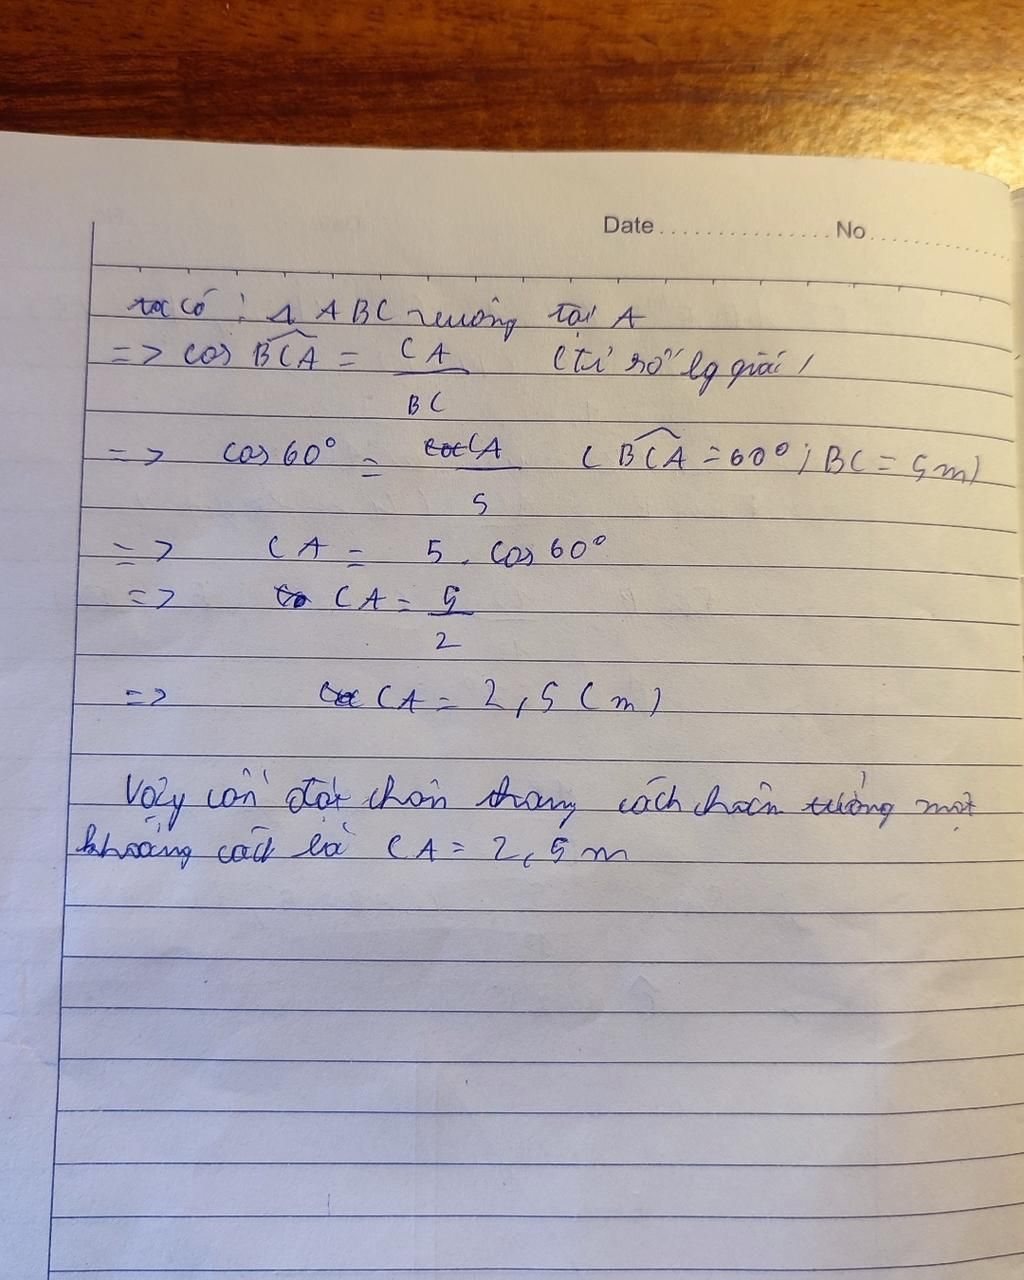 Date................No..................
ta có : Δ ABC vuông tại A
=> cos BCA = CA / BC (tỉ số lg giác)
=> cos 60° = CA / 5 ( BCA = 60° ; BC = 5m)
=> CA = 5 . cos 60°
=> CA = 5 / 2
=> CA = 2,5 (m)
Vậy cần đặt chân thang cách chân tường một
khoảng cách là CA = 2,5 m